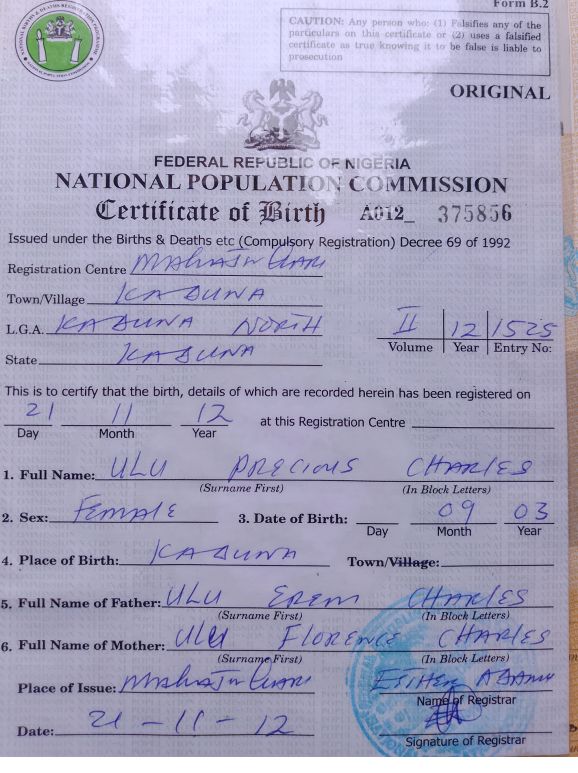 Form B.2
CAUTION: Any person who: (1) Falsifies any of the
particulars on this certificate or (2) uses a falsified
certificate as true knowing it to be false is liable to
prosecution
ORIGINAL
FEDERAL REPUBLIC OF NIGERIA
NATIONAL POPULATION COMMISSION
Certificate of Birth A012_ 375856
Issued under the Births & Deaths etc (Compulsory Registration) Decree 69 of 1992
Registration Centre
Town/Village KADUNA
L.G.A. KADUNA NORTH II 12 1525
Volume Year Entry No:
State KADUNA
This is to certify that the birth, details of which are recorded herein has been registered on
21 11 12 at this Registration Centre
Day Month Year
1. Full Name: ULU PRECIOUS CHARLES
(Surname First) (In Block Letters)
2. Sex: Female 3. Date of Birth: 09 03
Day Month Year
4. Place of Birth: KADUNA Town/Village:
5. Full Name of Father: ULU EREM CHARLES
(Surname First) (In Block Letters)
6. Full Name of Mother: ULU FLORENCE CHARLES
(Surname First) (In Block Letters)
Place of Issue: ESTHER ADAMU
Name of Registrar
Date: 21-11-12
Signature of Registrar